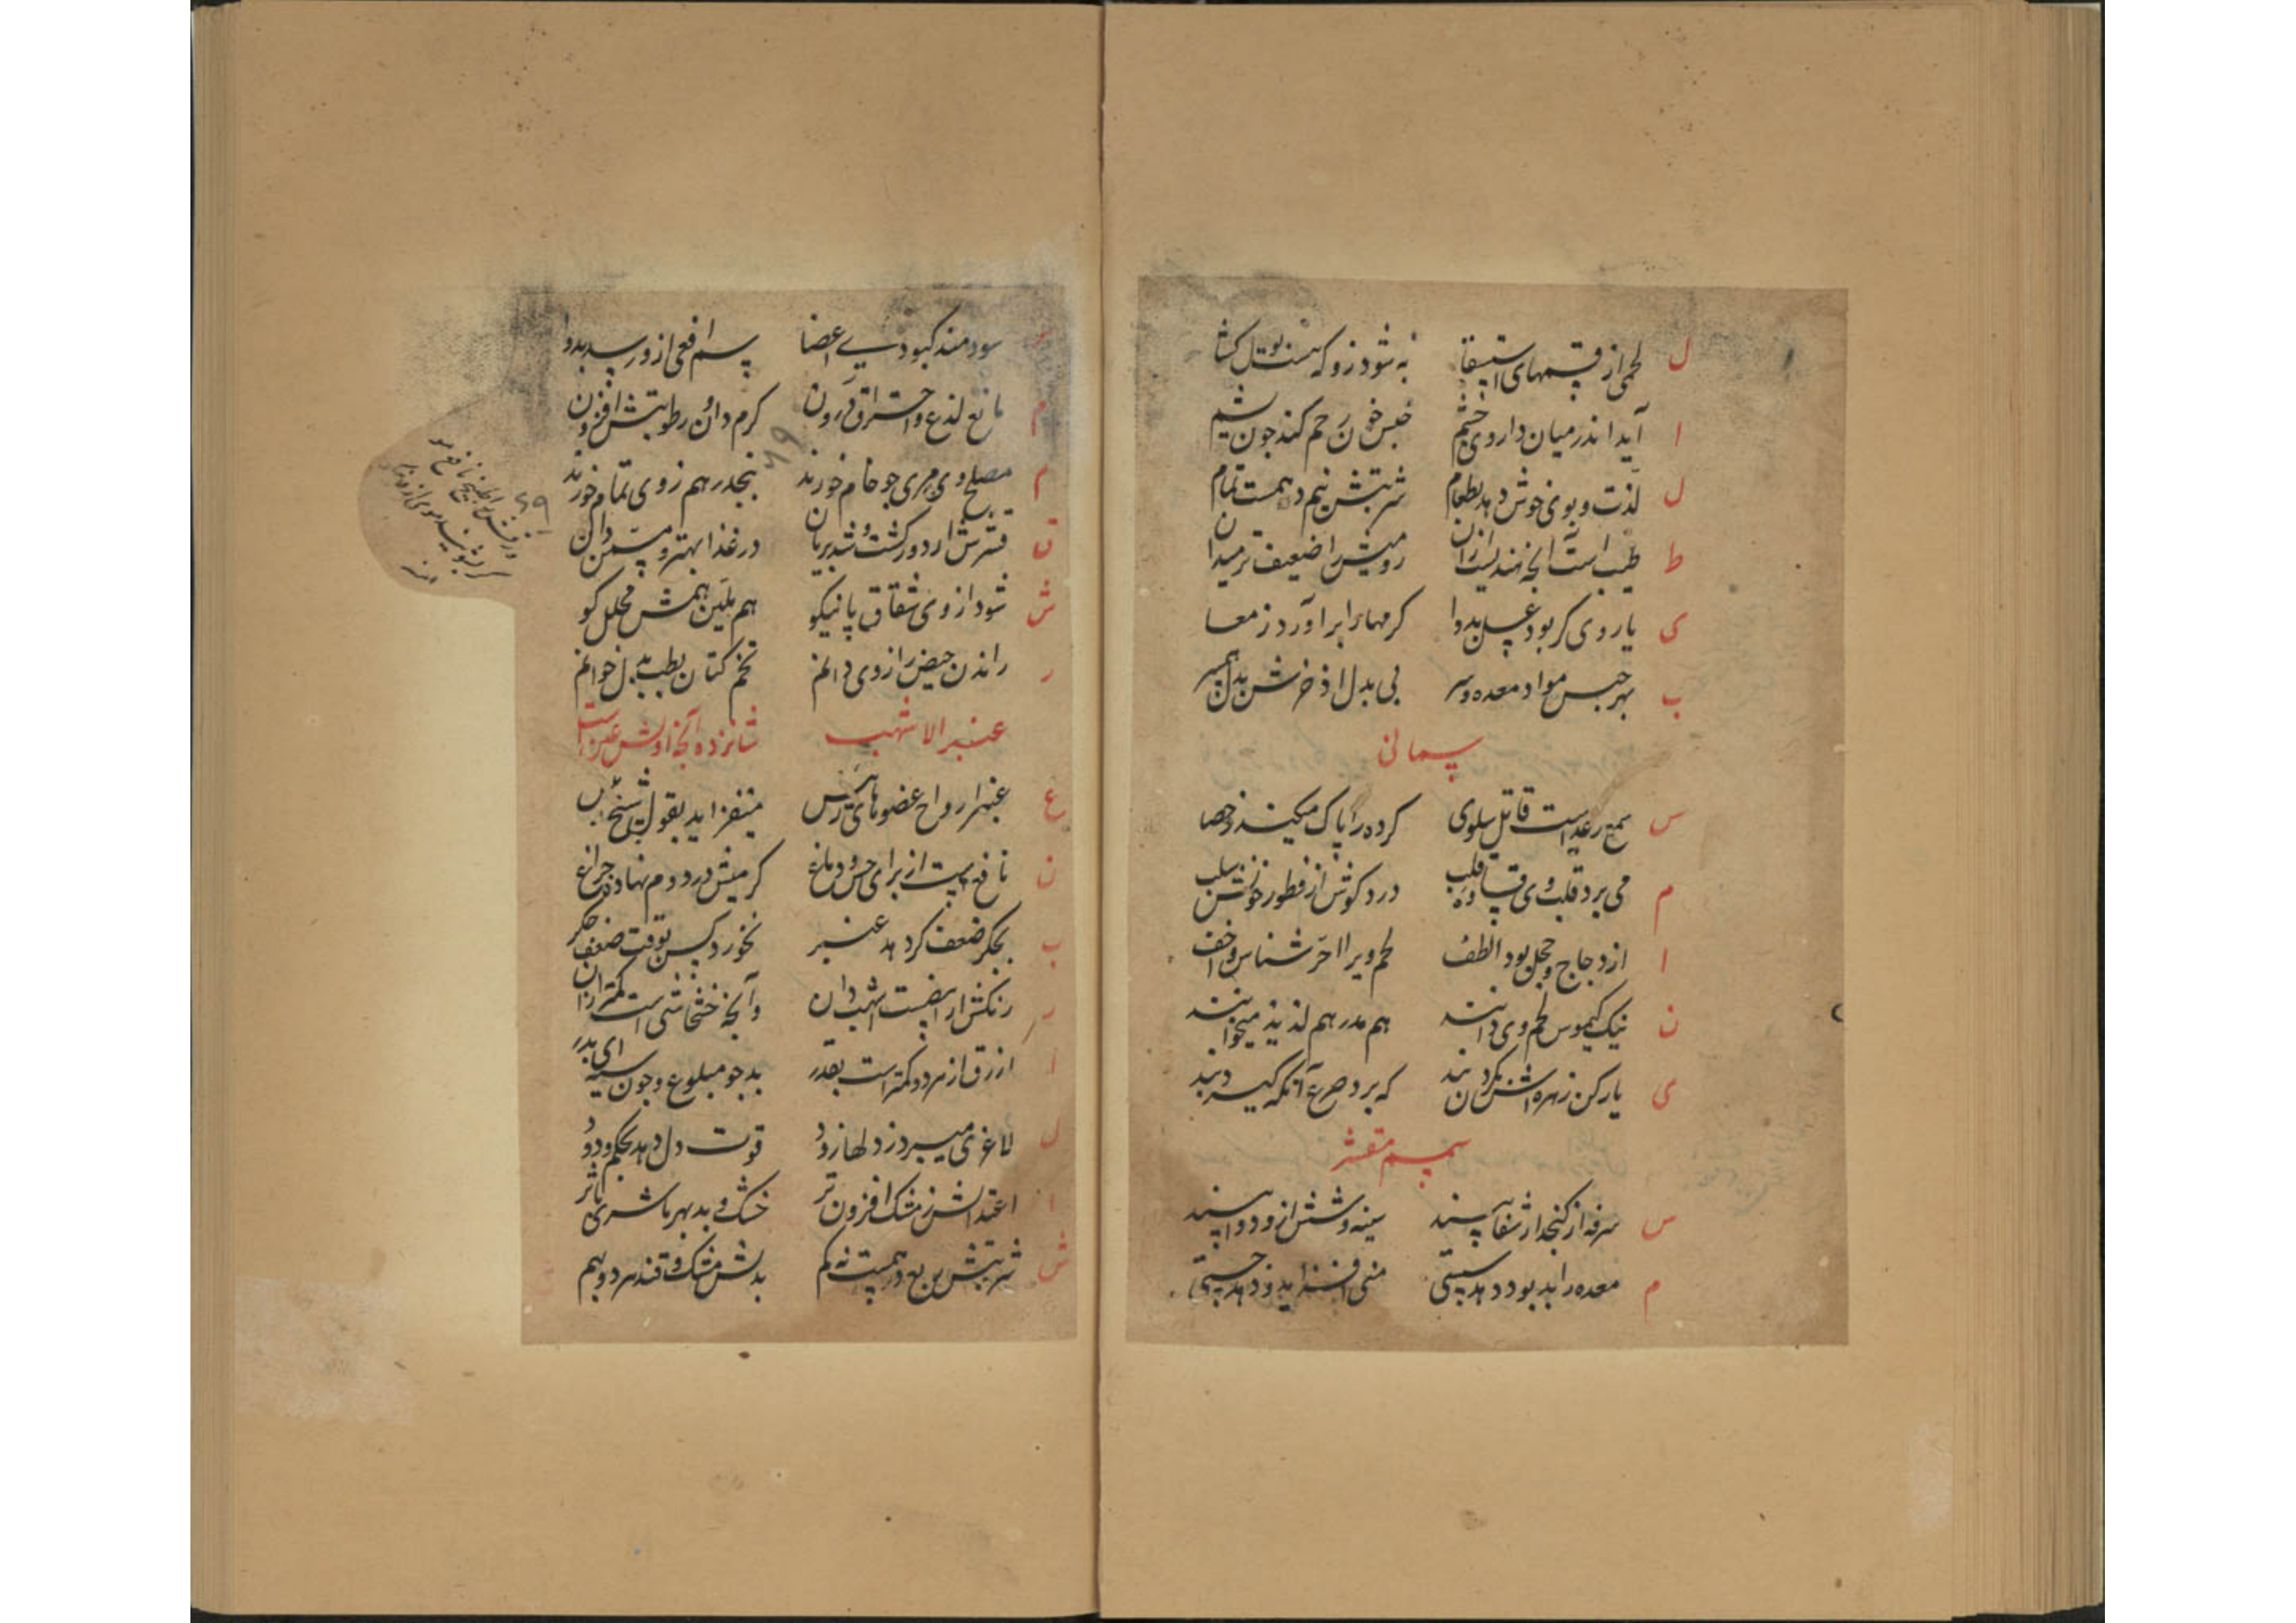 ل لحمی از قسمهای استسقا به شود زو که هست بوتل کشا
ا آید اندر میان داروی چشم حبس خون رحم کند چون پشم
ل لذت و بوی خوش دهد بطعام شربتش نیم درهمست تمام
ط طیب است آنچه هندیست ازان رومیش را ضعیف تر میدان
ی یار وی کر بود عسل بدوا کرمها را برآورد ز معا
ب بهر حبس مواد معده و سر بی بدل اذخرش بدل
سمانی
س سمع رعد است قاتل سلوی کرده را پاک میکند ز حصا
م می برد قلب وی قساوت قلب درد کوش از قطور خونش سلب
ا از دجاج و حجل بود الطف لحم ویرا احر شناس و اخف
ن نیک کیموس لحم وی دانند هم مدر هم لذیذ میخوانند
ی یار کن زهره اش که برد صرع آنکه
سمسم مقشر
س سرفه از کنجد ار شفا بیند سینه و شش ازو دوا بیند
م معده را بد بود دهد سستی منی افزاید و دهد چستی
سودمند کبودیی اعضا سم افعی ازو رسد بدوا
م مانع لذع و احتراق درون کرم دان و رطوبتش افزون
م مصلح وی مری چو خام خورند پنجدرهم ز وی تمام خورند
ق قشرش ار دور کشت و شد بریان در غذا بهتر و مسمن دان
ش شود از وی شقاق پا نیکو هم ملین همش محلل کو
ر راندن حیض را ز وی دانم تخم کتان بطب بدل خوانم
عنبر الاشهب شانزده آنچه اولش عین است
ع عنبر ارواح عضوهای رئیس میفزاید بقول شیخ
ن نافع است از برای حس و دماغ کرمیش در دوم نهاده چراغ
ب بجکر ضعف کر دهد عنبر نخورد کس بوقت ضعف جکر
ر رنکش ار ابیضست اشهب دان وآنچه خشخاشی است کمتر ازان
ا ازرق از هر دو کمتر است بقدر بد چو مبلوع و چون سیه ای بدر
ل لاغری میبرد ز دلها زود قوت دل دهد بحکم ودود
ا اعتدالش ز مشک افزون تر خشک و بد بهر ماشری
ش شربتش ربع درهمست نه کم بدلش مشک و قند هر دو بهم
۶۹
۶۹